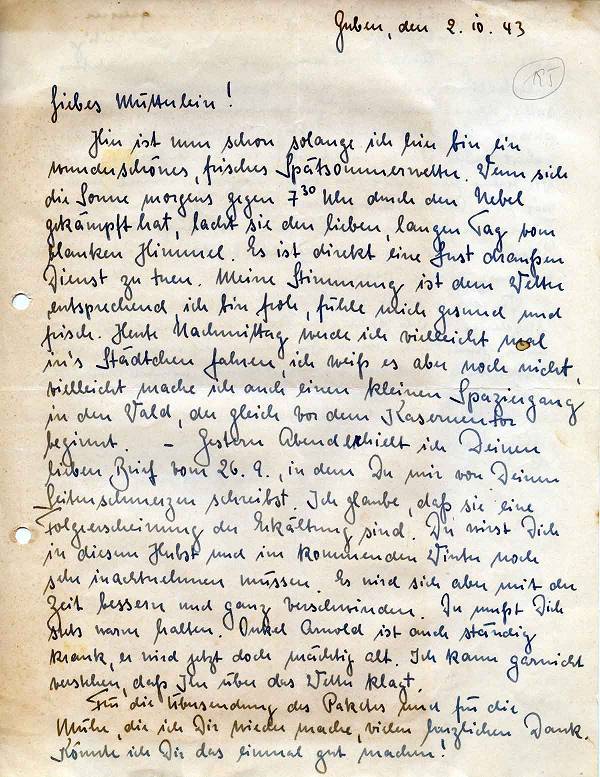 Guben, den 2. 10. 43
Liebes Mütterlein!
Hier ist nun schon solange ich hier bin ein
wunderschönes, frisches Spätsommerwetter. Wenn sich
die Sonne morgens gegen 7³⁰ Uhr durch den Nebel
gekämpft hat, lacht sie den lieben, langen Tag vom
blanken Himmel. Es ist direkt eine Lust draußen
Dienst zu tuen. Meine Stimmung ist dem Wetter
entsprechend, ich bin froh, fühle mich gesund und
frisch. Heute Nachmittag werde ich vielleicht mal
in's Städtchen fahren, ich weiß es aber noch nicht,
vielleicht mache ich auch einen kleinen Spaziergang
in den Wald, der gleich vor dem Kasernentor
beginnt. – Gestern Abend erhielt ich Deinen
lieben Brief vom 26. 9., in dem Du mir von Deinen
Seitenschmerzen schreibst. Ich glaube, daß sie eine
Folgeerscheinung der Erkältung sind. Du wirst Dich
in diesem Herbst und im kommenden Winter noch
sehr inachtnehmen müssen. Es wird sich aber mit der
Zeit bessern und ganz verschwinden. Du mußt Dich
stets warm halten. Onkel Arnold ist auch ständig
krank, er wird jetzt doch mächtig alt. Ich kann garnicht
verstehen, daß Ihr über das Wetter klagt.
Für die Übersendung des Paketes und für die
Mühe, die ich Dir wieder mache, vielen herzlichen Dank.
Könnte ich Dir das einmal gut machen!